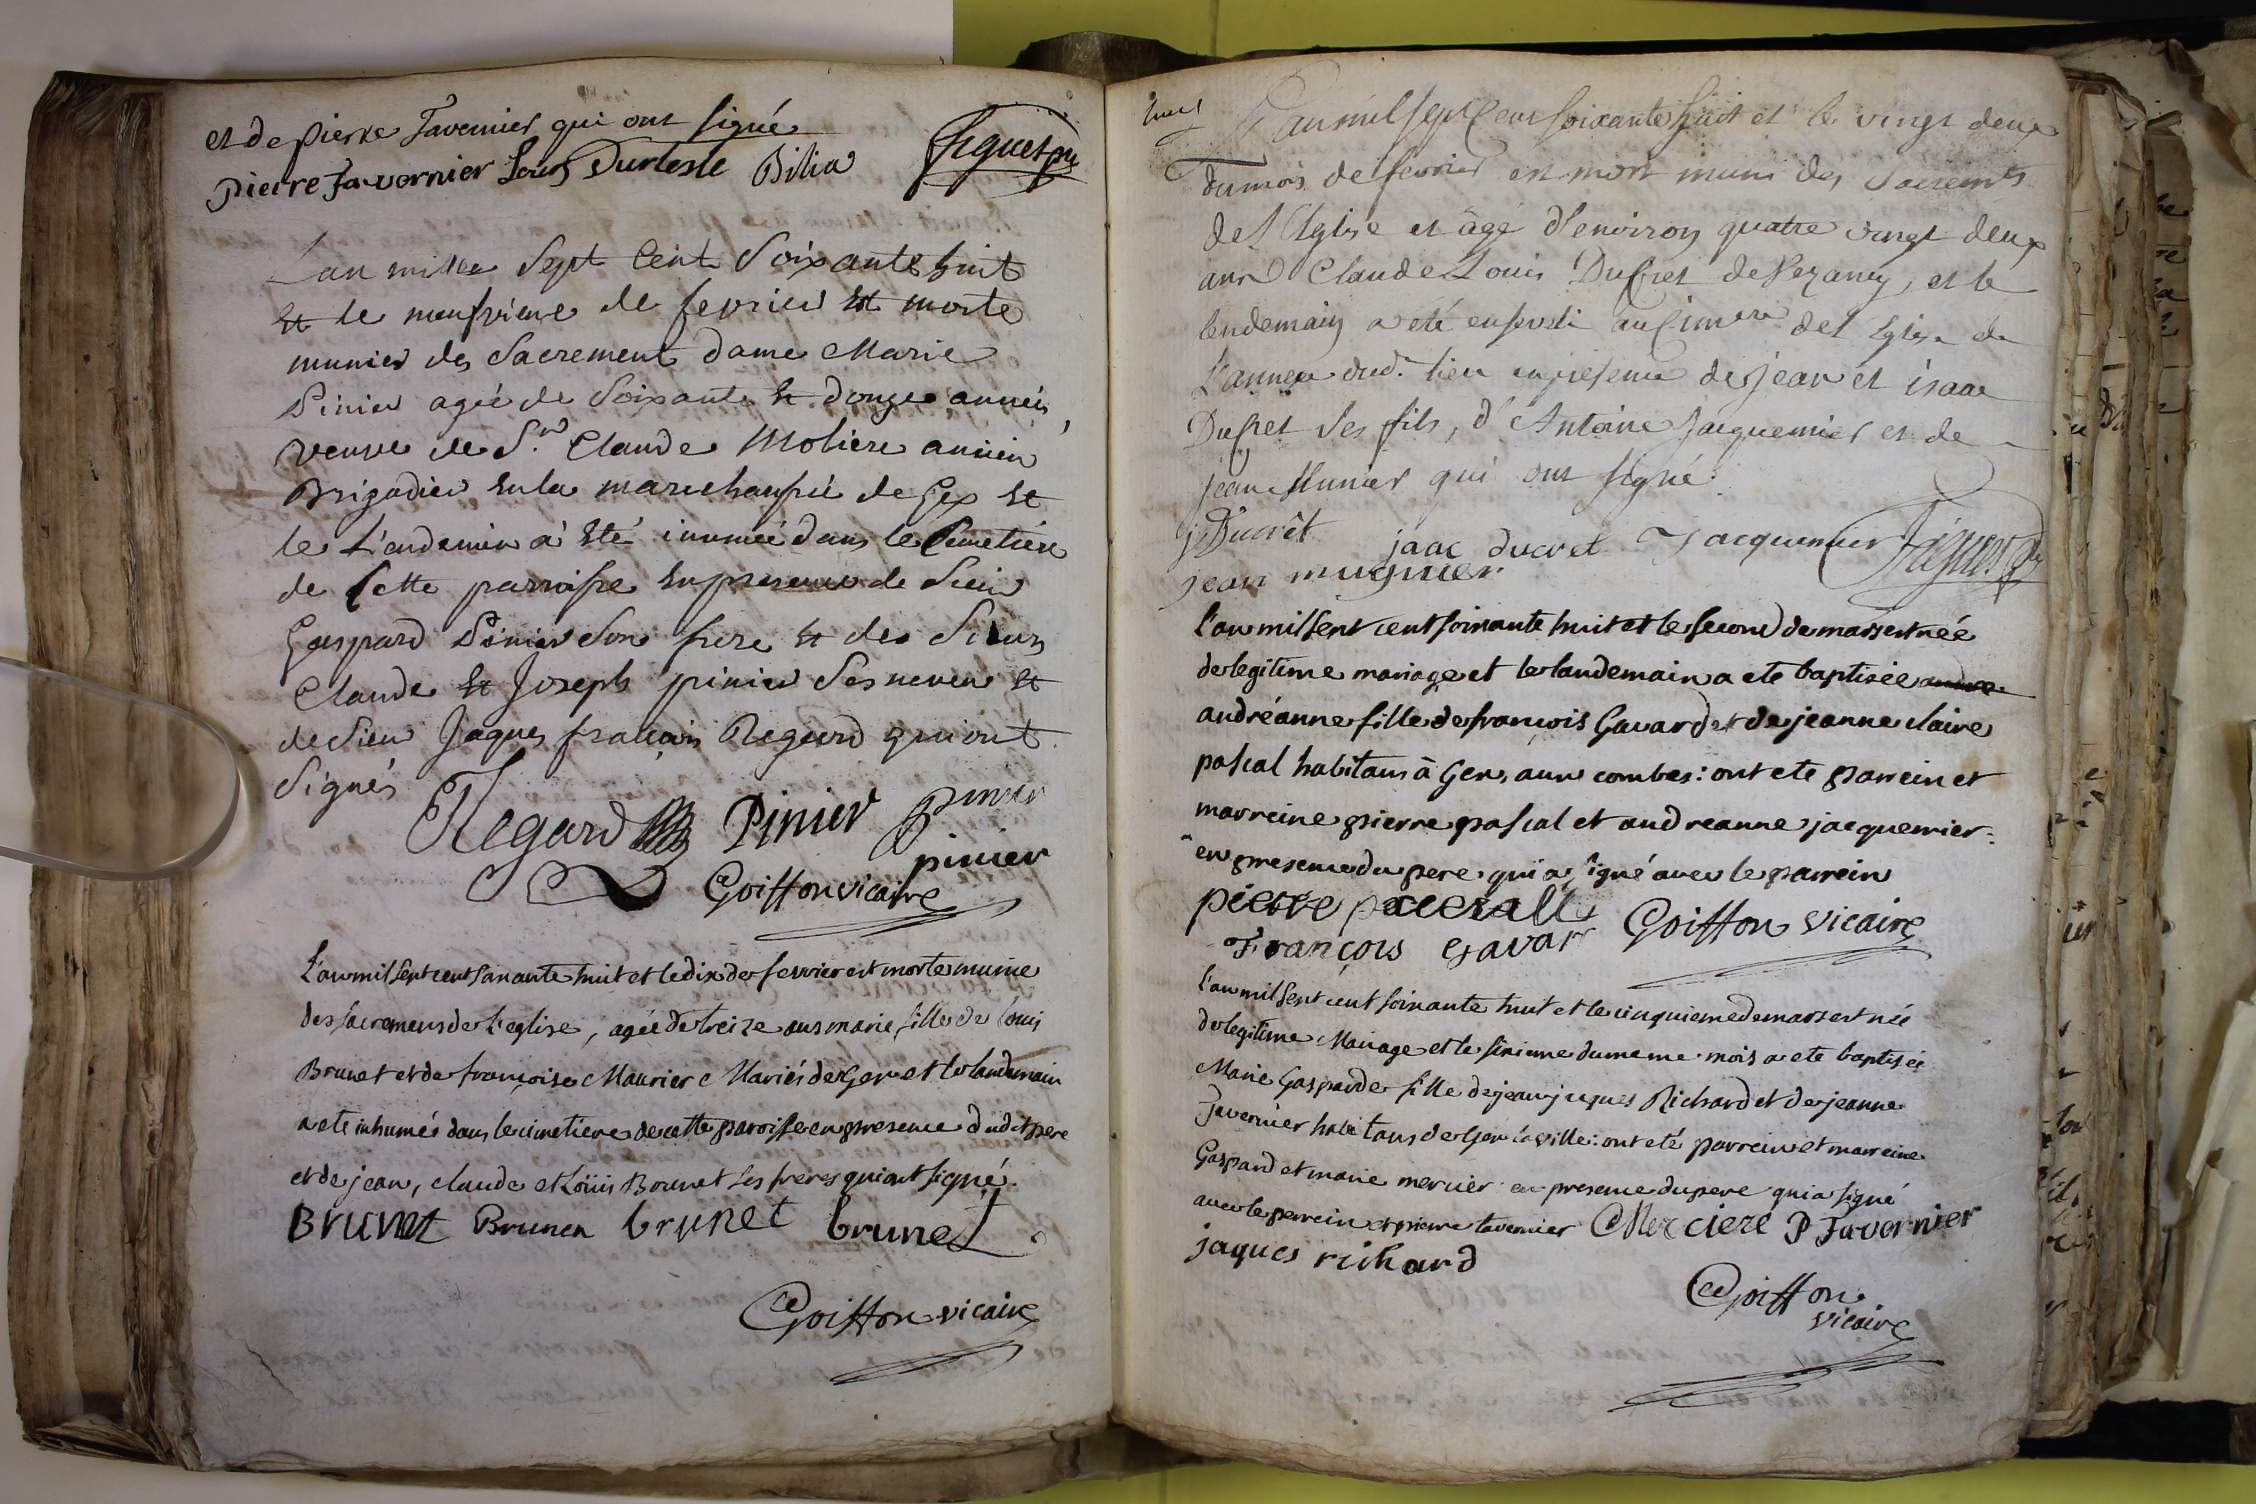 et de pierre Tavernier qui ont signé
pierre Tavernier Louis Durleste Bilia figuet
L'an mille Sept Cent Soixante huit
Et le neufvieme de fevrier Est morte
munier des Sacrement dame Marie
Pinier ageé de Soixante Et douze anneés,
veuve de Sr. Claude Moliere ancien
Brigadier En la marechaussée de Gex Et
le L'endemain à Eté inumée dans le Cimetiere
de Cette parroisse En presence de Sieur
Gaspard Pinier Son frere Et des Sieurs
Claude Et Joseph pinier Ses neveu Et
de Sieur Jaques francois Regard qui ont
Signés
Regard Pinier Pinier
pinier
Goiffon vicaire
L'an mil sept cent soixante huit et le dix de fevrier est morte munie
des sacremens de l'eglise, agée de treize ans marie fille de Louis
Brunet et de françoise Maurier Mariés de Gex et le landemain
a eté inhumée dans le cimetiere de cette paroisse en presence dudit pere
et de jean, claude et Loüis Brunet ses freres qui ont signé.
Brunet Brunet brunet brunet
Goiffon vicaire
L'an mil sept Cent soixante huit et le vingt deux
du mois de fevrier est mort muni des Sacremts
de l'Eglise et âgé d'environ quatre vingt deux
ans Claude Louis Ducret de Vezancy, et le
lendemain a eté enseveli au Cimre de l'Eglise de
L'annexe dud. lieu en presence de Jean et isaac
Ducret ses fils, d'Antoine Jacquemier et de
jean Munier qui ont signé.
j Ducrêt jaac ducret Jacquemier figuet
jean mugnier
l'an mil sept cent soixante huit et le second de mars est née
de legitime mariage et le landemain a ete baptisée andre
andréanne fille de françois Gavard et de jeanne claire
pascal habitans à Gex, aux combes: ont ete parrein et
marreine pierre pascal et andreanne jacquemier:
en presence du pere qui a signé avec le parrein
pierre pacesall
François Gavar Goiffon vicaire
l'an mil sept cent soixante huit et le cinquieme de mars est née
de legitime Mariage et le sixieme du meme mois a ete baptisée
Marie Gasparde fille de jean jaques Richard et de jeanne
Tavernier habitans de Gex la ville: ont eté parrein et marreine
Gaspard et marie mercier en presence du pere qui a signé
avec le perrein et pierre tavernier Merciere P Tavernier
jaques richard
Goiffon
vicaire